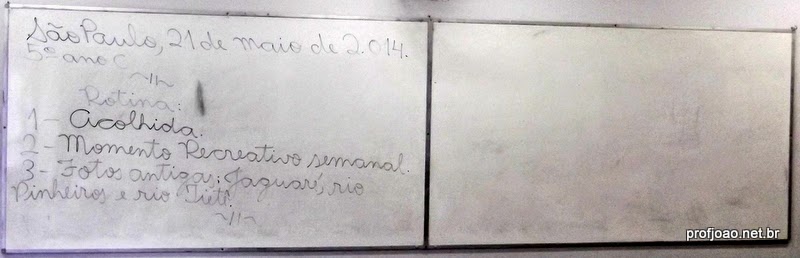 São Paulo, 21 de maio de 2.014.
5º ano C
~//~
Rotina:
1 - Acolhida.
2 - Momento Recreativo semanal.
3 - Fotos antigas: Jaguaré, rio
Pinheiros e rio Tietê.
~//~
profjoao.net.br